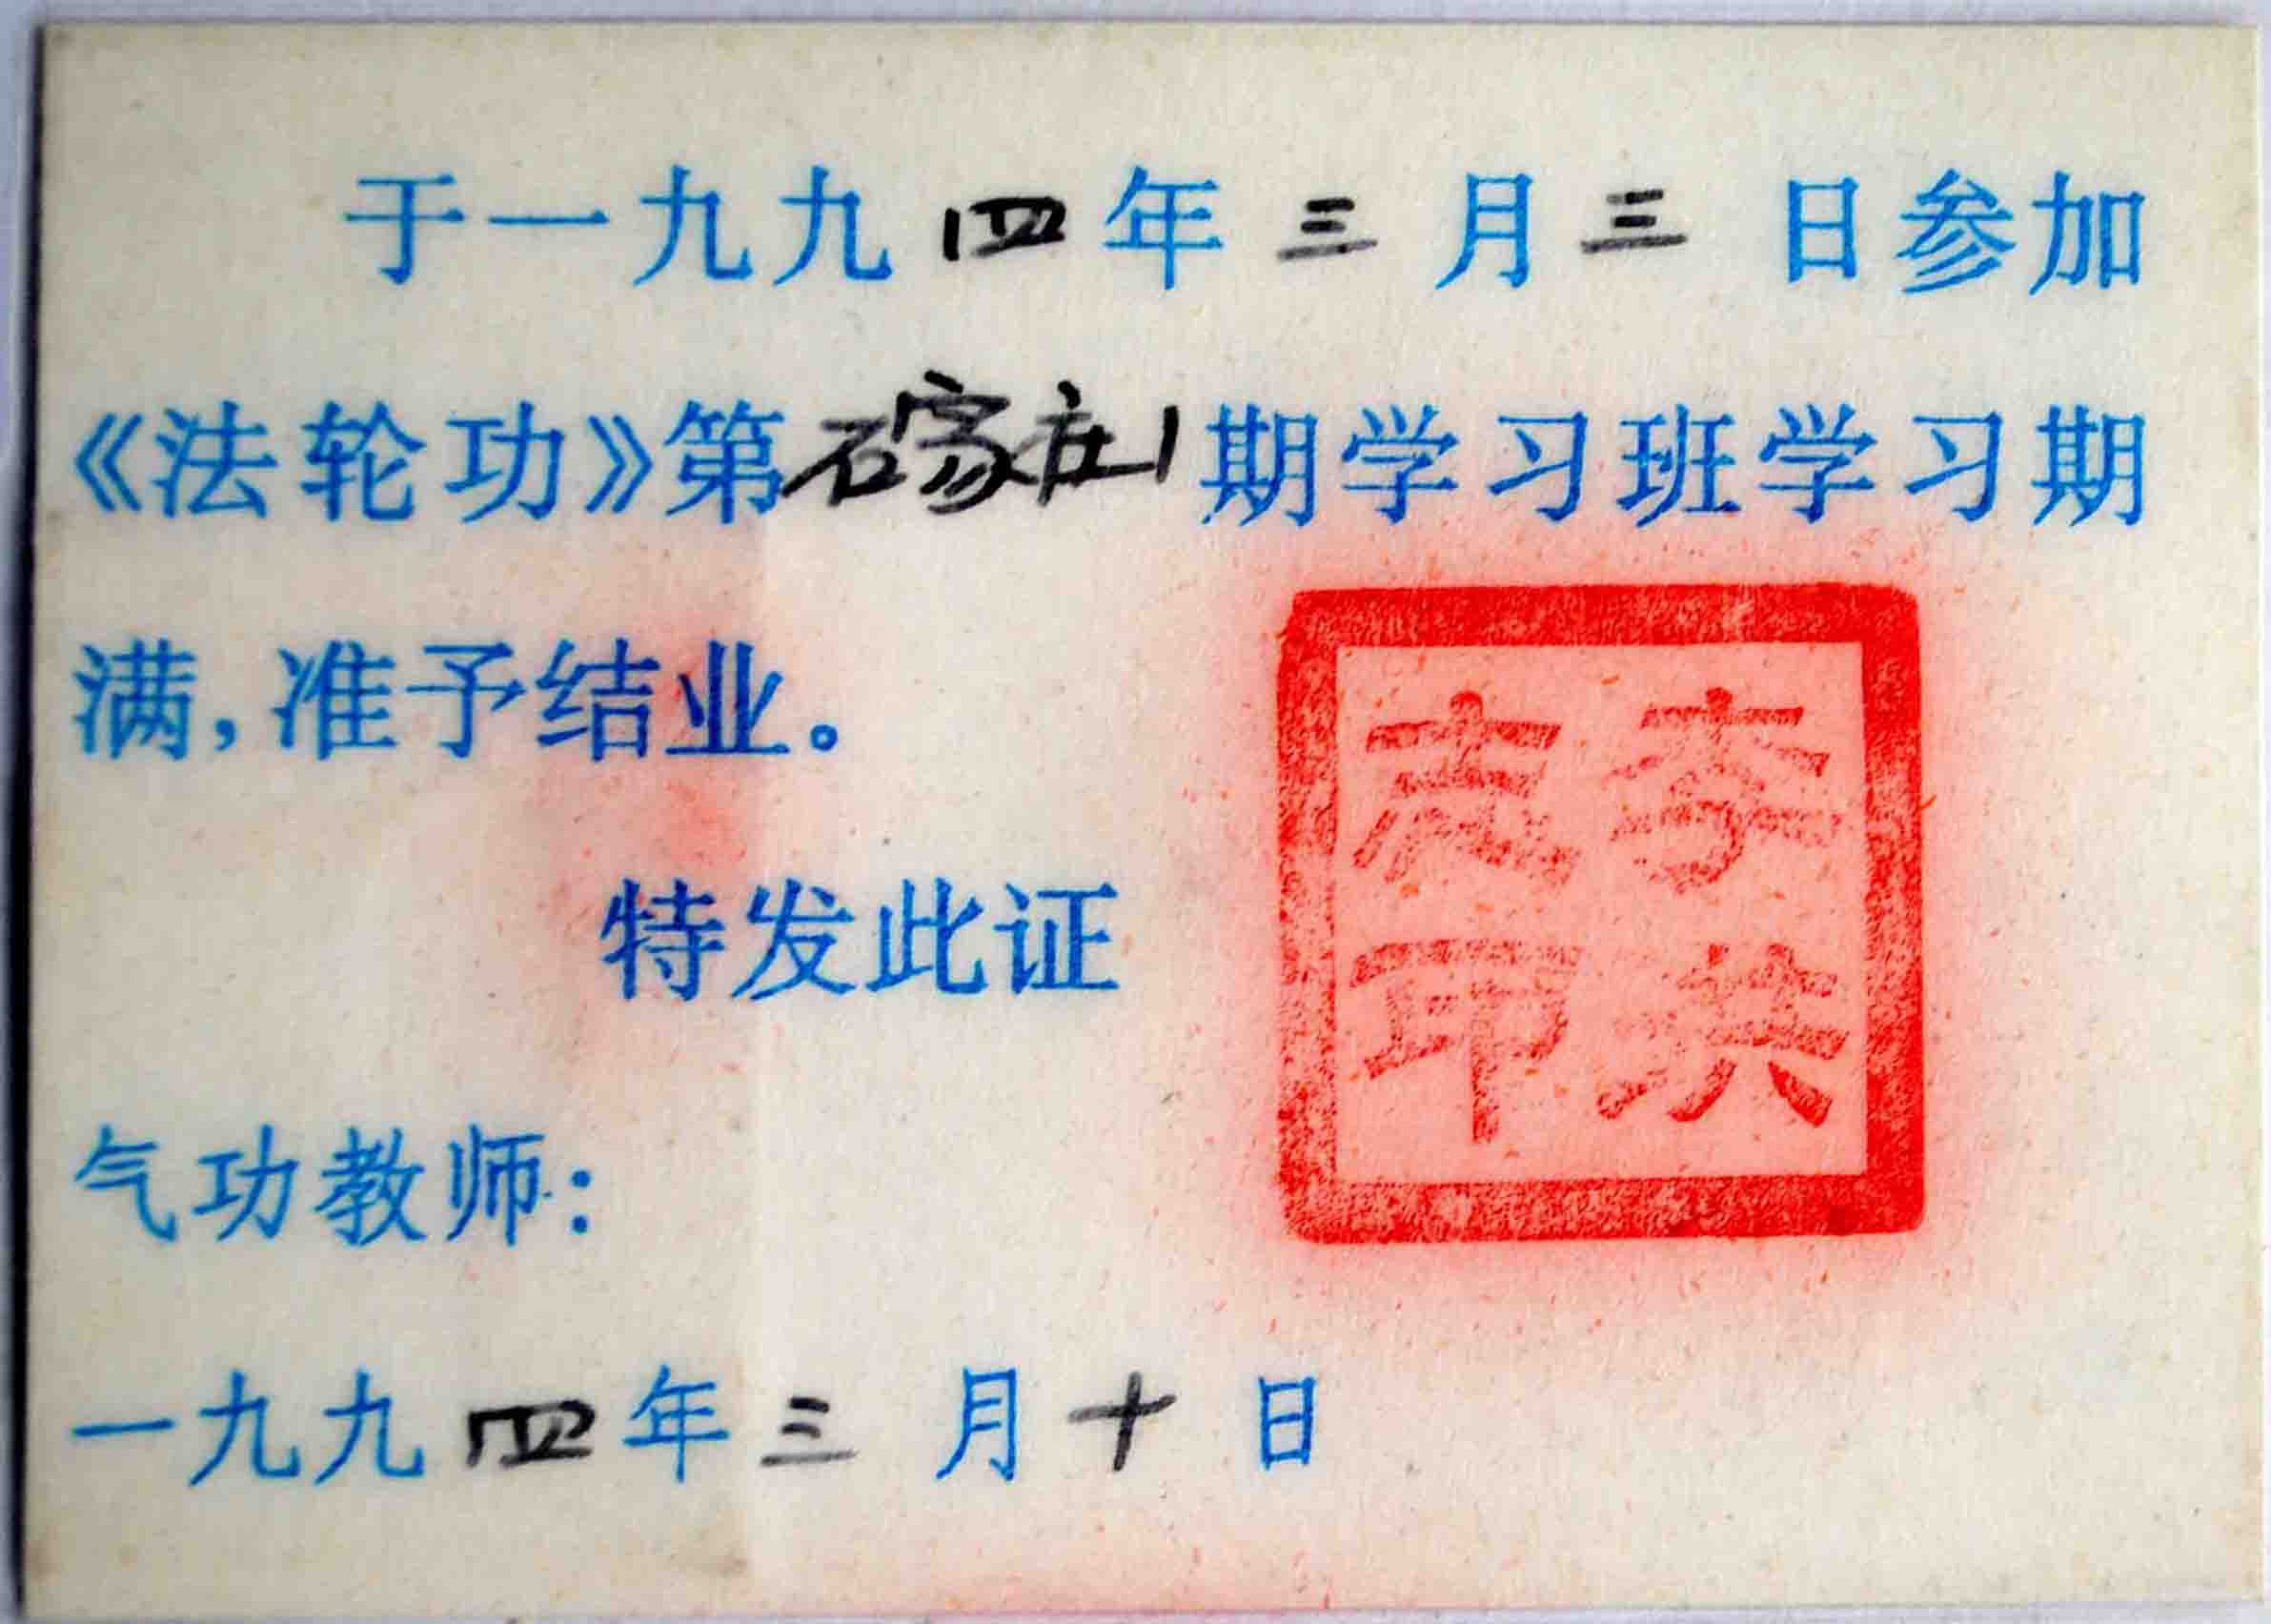 于一九九四年三月三日参加
《法轮功》第石家庄1期学习班学习期
满，准予结业。
特发此证
李洪志印
气功教师：
一九九四年三月十日